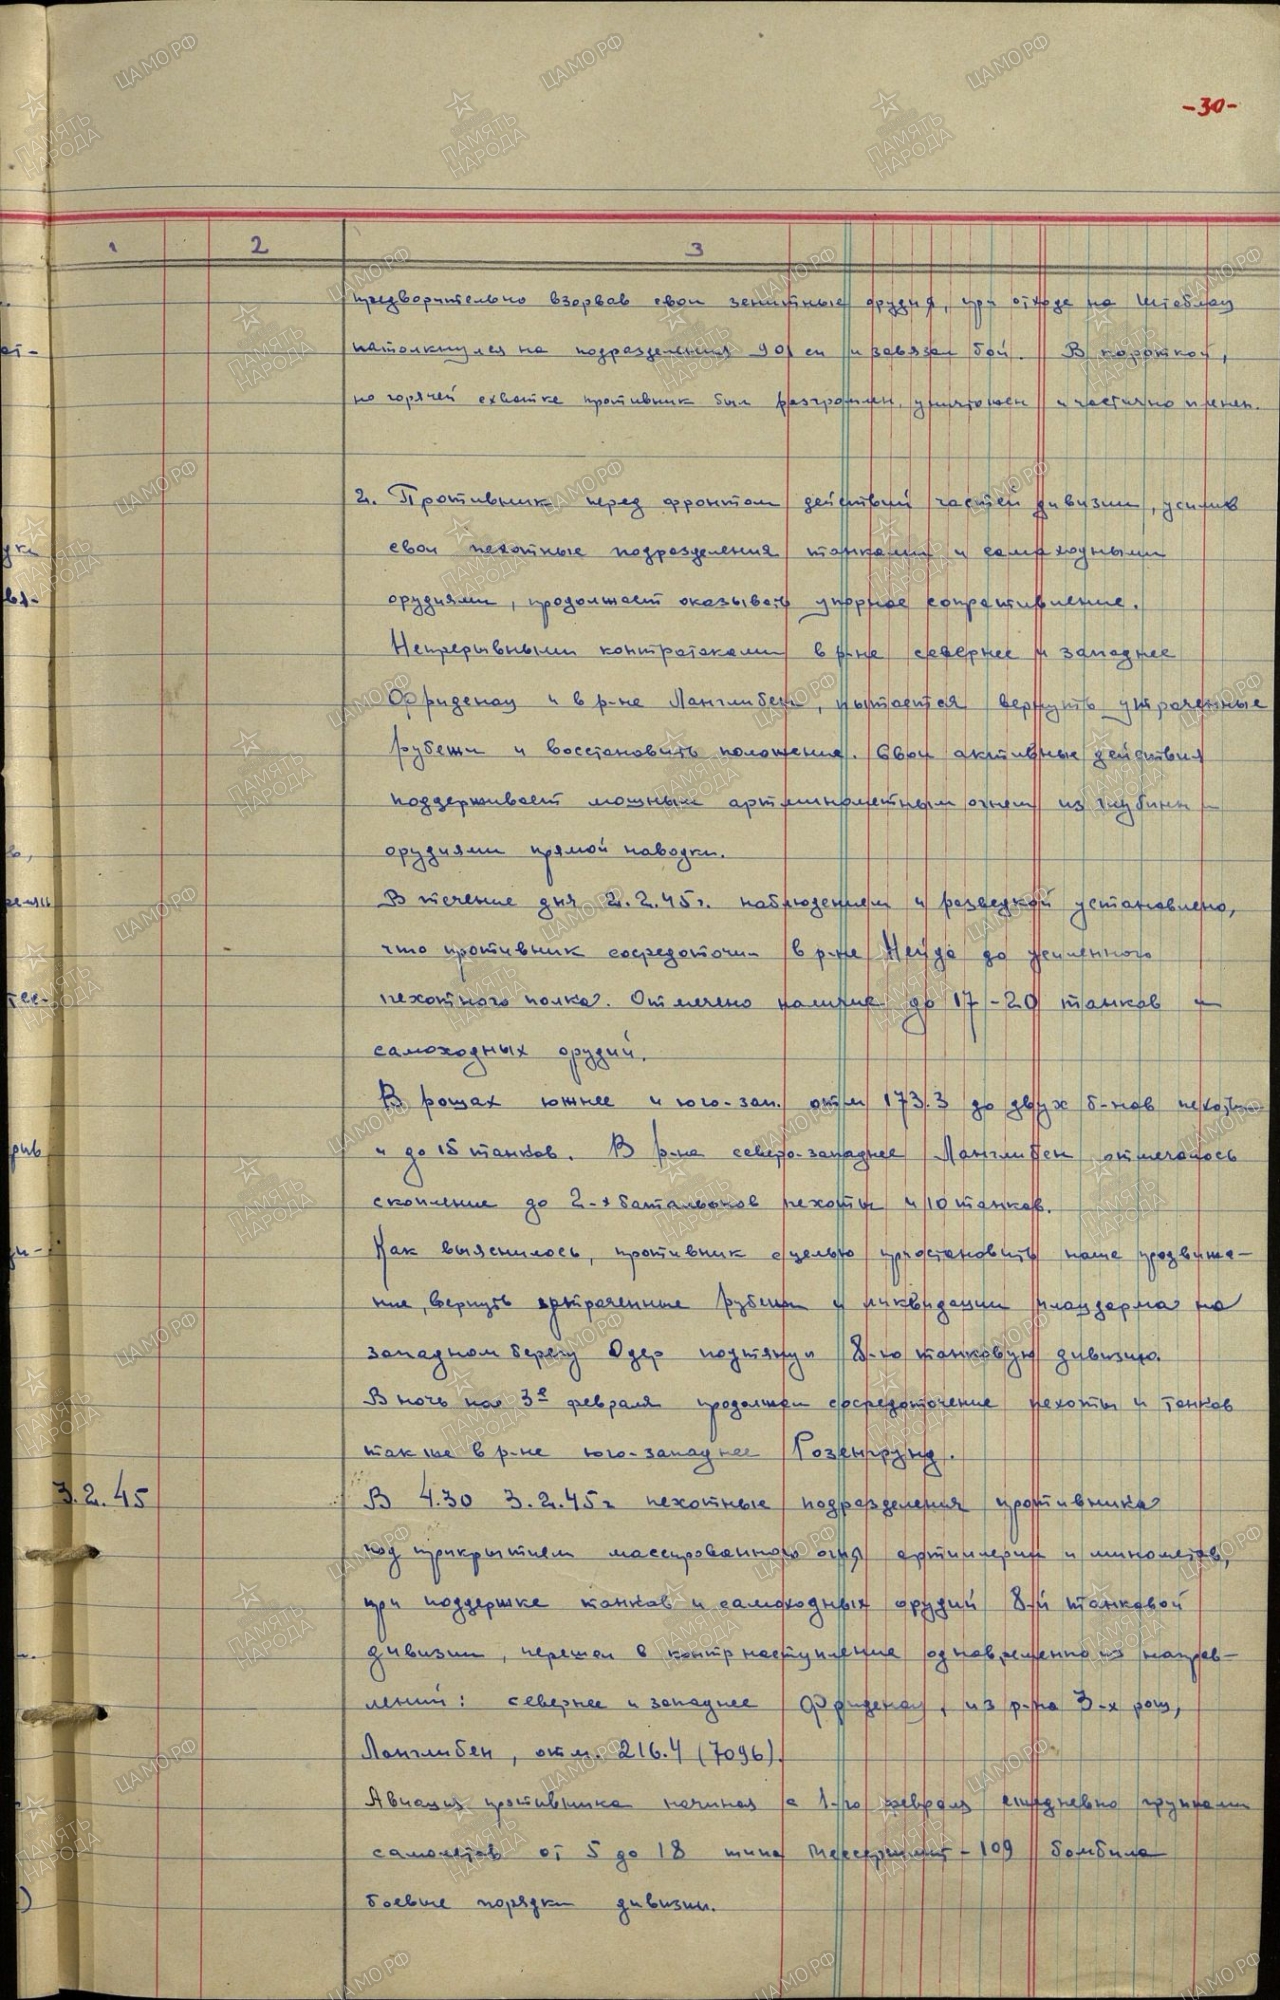 -30-
1 2 3
предворительно взорвав свои зенитные орудия, при отходе на Штеблау
натолкнулся на подразделения 901 сп и завязал бой. В короткой,
но горячей схватке противник был разгромлен, уничтожен и частично пленен.
2. Противник перед фронтом действий частей дивизии, усилив
свои пехотные подразделения танками и самоходными
орудиями, продолжает оказывать упорное сопротивление.
Непрерывными контратаками в р-не севернее и западнее
Фриденау и в р-неЛанглибен, пытается вернуть утраченные
рубежи и восстановить положение. Свои активные действия
поддерживает мощным артминометным огнем из глубины и
орудиями прямой наводки.
В течение дня 2.2.45г. наблюдением и разведкой установлено,
что противник сосредоточил в р-не Нейда до усиленного
пехотного полка. Отмечено наличие до 17-20 танков и
самоходных орудий.
В рощах южнее и юго-зап. отм 173.3 до двух б-нов пехоты
и до 15 танков. В р-не северо-западнее Ланглибен отмечалось
скопление до 2-х батальонов пехоты и 10 танков.
Как выяснилось, противник с целью приостановить наше продвиже-
ние, вернуть утраченные рубежи и ликвидации плацдарма на
западном берегу Одер подтянул 8-ю танковую дивизию.
В ночь на 3е февраля продолжал сосредоточение пехоты и танков
также в р-не юго-западнее Розенгрунд.
3.2.45 В 4.30 3.2.45г пехотные подразделения противника
под прикрытием массированного огня артиллерии и минометов,
при поддержке танков и самоходных орудий 8-й танковой
дивизии, перешел в контрнаступление одновременно из направ-
лений: севернее и западнее Фриденау, из р-на 3-х рощ,
Ланглибен, отм. 216.4 (7096).
Авиация противника начиная с 1-го февраля ежедневно группами
самолетов от 5 до 18 типа Мессершмит-109 бомбила
боевые порядки дивизии.